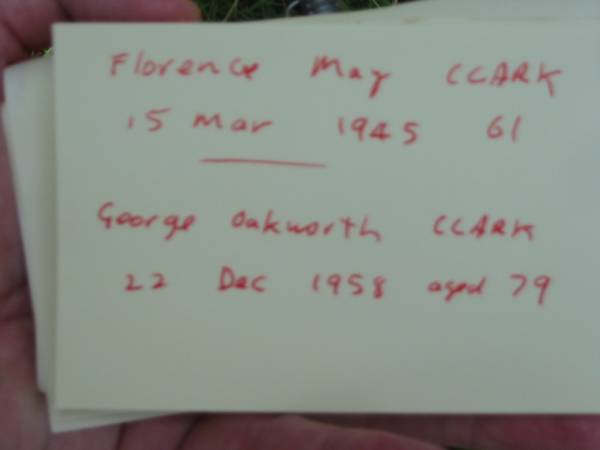 Florence May CLARK
15 Mar 1945 61
George Oakworth CLARK
22 Dec 1958 aged 79